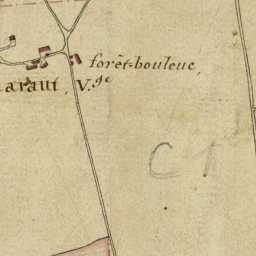 forêt-bouleuc,
araut, V.ge
C